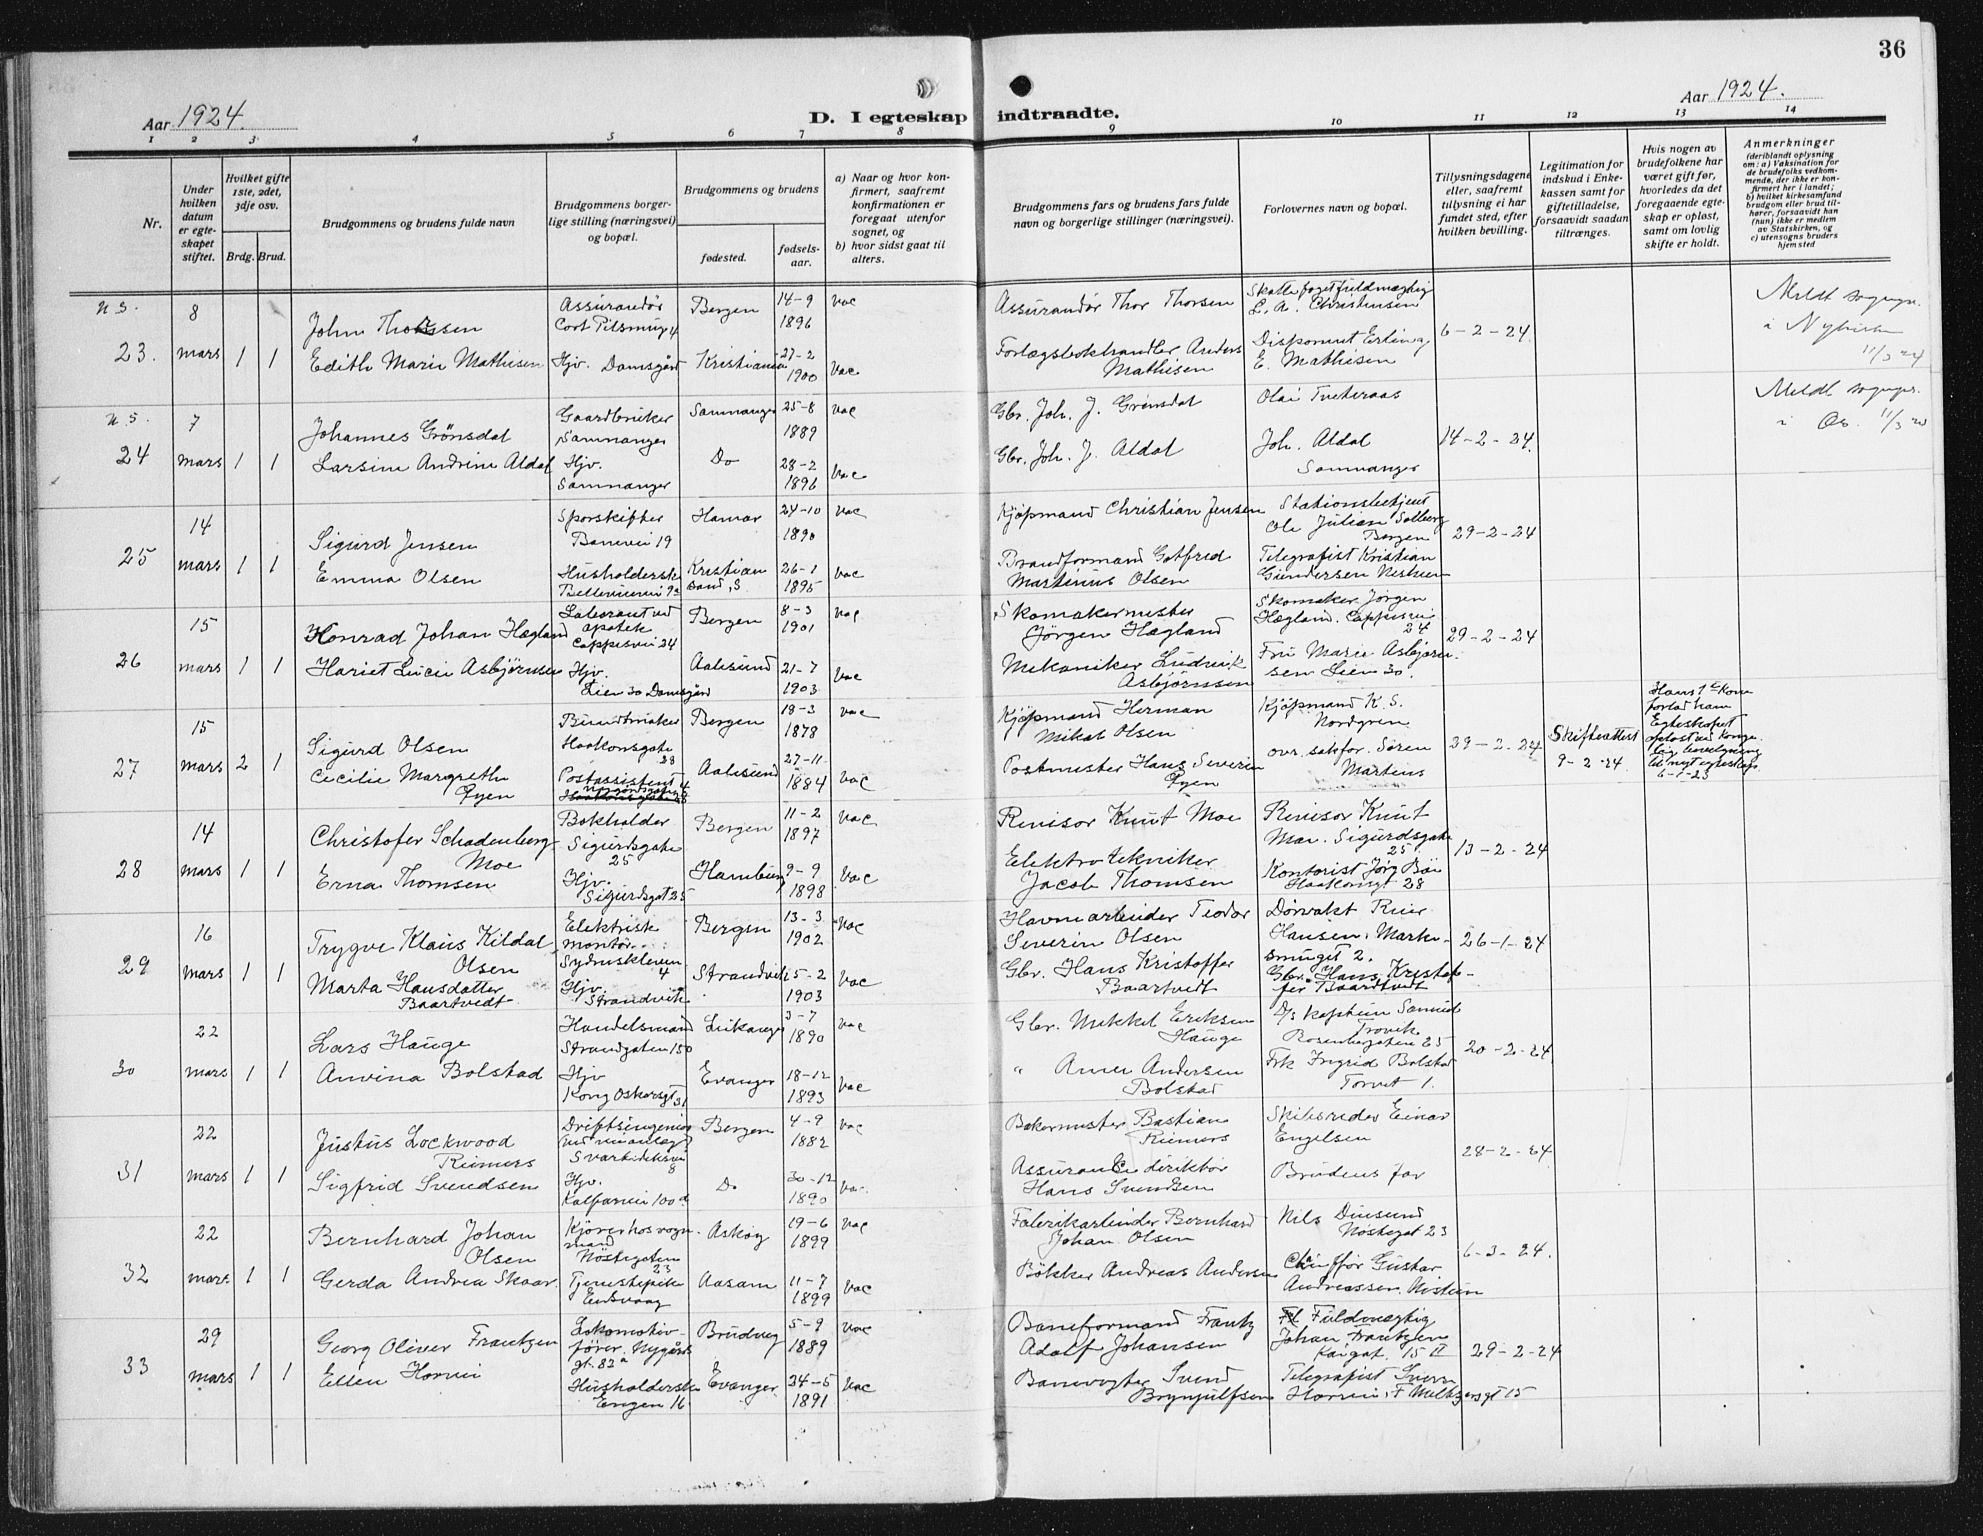 36
Aar 1924.
D. I egteskap indtraadte.
Aar 1924.
1 2 3 4 5 6 7 8 9 10 11 12 13 14
Nr.
Under hvilken datum er egte-skapet stiftet.
Hvilket gifte 1ste, 2det, 3dje osv.
Brdg. Brud.
Brudgommens og brudens fulde navn
Brudgommens og brudens borger-lige stilling (næringsvei) og bopæl.
Brudgommens og brudens
fødested.
fødsels-aar.
a) Naar og hvor kon-firmert, saafremt konfirmationen er foregaat utenfor sognet, og
b) hvor sidst gaat til alters.
Brudgommens fars og brudens fars fulde navn og borgerlige stillinger (næringsvei).
Forlovernes navn og bopæl.
Tillysningsdagene eller, saafremt tillysning ei har fundet sted, efter hvilken bevilling.
Legitimation for indskud i Enke-kassen samt for giftetilladelse, forsaavidt saadan tiltrænges.
Hvis nogen av brudefolkene har været gift før, hvorledes da det foregaaende egte-skap er opløst, samt om lovlig skifte er holdt.
Anmerkninger
(deriblandt oplysning om: a) Vaksination for de brudefolks vedkom-mende, der ikke er kon-firmert her i landet; b) hvilket kirkesamfund brudgom eller brud til-hører, forsaavidt han (hun) ikke er medlem av Statskirken, og c) utensogns bruders hjemsted
N 3.
23. 8 mars 1 1
John Thorssen
Assurandør
Bergen 14-9 1896 vac
Assurandør Thor Thorsen
L. A. Christensen
Edith Marie Mathisen
Hjv. Damsgård
Kristiania 27-2 1900 vac
Forlagsbokhandler Anders Mathisen
Disponent Erling E. Mathisen
6-2-24
i
11/3 24
N 5.
24 7 mars 1 1
Johannes Grønsdal
Gaardbruker Samnanger
Samnanger 25-8 1889 vac
Gbr. Joh. J. Grønsdal
Olai Tveteraas
Larsine Andrine Aldal
Hjv. Samnanger
Do 28-2 1896 vac
Gbr. Joh. J. Aldal
Joh. Aldal Samnanger
14-2-24
i Os. 11/3
25 14 mars 1 1
Sigurd Jensen
Sporskifter Banevei 19
Hamar 24-10 1890 vac
Kjøpmand Christian Jensen
Stationsbetjent Ole Julian Solberg Bergen
Emma Olsen
Husholderske
Kristiansand, S 26-1 1895 vac
Brandformand Gotfred Martinus Olsen
Telegrafist Kristian Gundersen
29-2-24
26 15 mars 1 1
Konrad Johan Hægland
Laborant ved apotek Cappesvei 24
Bergen 8-3 1901 vac
Skomakermester Jørgen Hægland
Skomaker Jørgen Hægland. Cappesvei 24
Hariet Lucie Asbjørnsen
Hjv. Lien 30 Damsgård
Aalesund 21-7 1903 vac
Mekaniker Ludvik Asbjørnsen
Fru Marie Asbjørnsen Lien 30.
29-2-24
27 15 mars 2 1
Sigurd Olsen
Buntmaker Haakonsgate 28
Bergen 18-3 1878 vac
Kjøpmand Herman Mikal Olsen
Kjøpmand K. S. Nordgren
Cecilie Margrethe Øyen
Postassistent
Aalesund 27-11 1884 vac
Postmester Hans Severin Øyen
ovr. sakfør. Søren Martens
29-2-24
Skifteattest 9-2-24
Hans 1ste Kone forlod ham Egteskapet opløst ved Konge-lig bevilgning til nyt egteskap 6-1-23
28 14 mars 1 1
Christofer Schadenberg Moe
Bokholder Sigurdsgate 25
Bergen 11-2 1897 vac
Revisor Knut Moe
Revisor Knut Moe. Sigurdsgate 25
Erna Thomsen
Hjv. Sigurdsgat 25
Hamburg 9-9 1898 vac
Elektrotekniker Jacob Thomsen
Kontorist Jørg Bøe Haakonsgt 28
13-2-24
29 16 mars 1 1
Trygve Klaus Kildal Olsen
Elektrisk montør. Sydneskleven 4
Bergen 13-3 1902 vac
Havnearbeider Teodor Severin Olsen
Dørvakt Reier Hansen, Marke-smuget 2.
Marta Hansdatter Baartvedt
Hjv. Strandvik
Strandvik 5-2 1903 vac
Gbr. Hans Kristoffer Baartvedt
Gbr. Hans Kristof-fer Baardtvedt
26-1-24
30 22 mars 1 1
Lars Hauge
Handelsmand Strandgaten 150
Leikanger 3-7 1890 vac
Gbr. Mikkel Eriksen Hauge
D/s kaptein Samuel Trovik Rosenbergaten 25
Anvina Bolstad
Hjv Kong Oskarsgt 31
Evanger 18-12 1893 vac
" Arne Andersen Bolstad
Frk Ingrid Bolstad Torvet 1.
20-2-24
31 22 mars 1 1
Justus Lockwood Reimers
Driftsingeniør
Bergen 4-9 1882 vac
Bakermester Bastian Reimers
Skibsreder Einar Engelsen
Sigfrid Svendsen
Hjv. Kalfarvei 100 a
Do 30-12 1890 vac
Assurance direktør Hans Svendsen
Brudens far
28-2-24
32 22 mars 1 1
Bernhard Johan Olsen
Kjører hos vogn-mand Nøstegaten 23
Askøy 19-6 1899 vac
Fabrikarbeider Bernhard Johan Olsen
Nils Dinesund Nøstegat 23
Gerda Andrea Skaar
Tjenestepike Eidsvaag
Aasam 11-7 1899 vac
Bøkker Andreas Andersen
Chauffør Gustav Andreassen
6-3-24.
33 29 mars 1 1
Georg Oliver Frantzen
Lokomotiv-fører. Nygårds gt. 82 a
Bruvig 5-9 1889 vac
Baneformand Frantz Adolf Johansen
Fuldmægtig Johan Frantzen Kaigat. 15 II
Ellen Horvei
Husholderske Engen 16
Evanger 24-5 1891 vac
Banevogter Svend Brynjulfsen
Telegrafist Sverre Horvei, F Meltzersgt 15
29-2-24